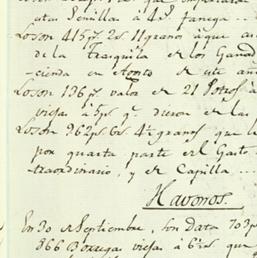 otas Semillas à 4 r.s fanega
Lo son 415 p.s 2 r.s 11 granos à que
de la Trasquila de los Ganad
cienda en Agosto de este año
Lo son 136 p.s valor de 21 Potros à
viejas à 5 p.s q.e dieron de las
Lo son 962 p.s 6 r.s 4½ granos que le
por quarta parte el Gasto
traordinario, y de Capilla
Havonos.
En 30 de Septiembre, son Data 703 p.s
866 Borregas viejas à 6 r.s que